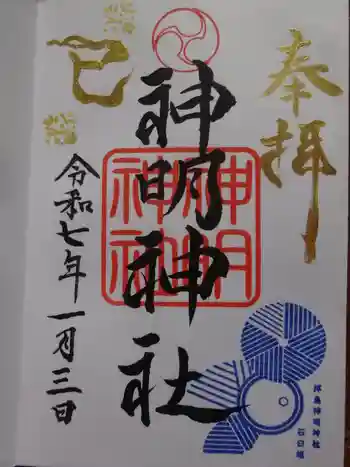 奉拝
神明神社
神明
神社
巳
令和七年一月三日
神明神社
石臼